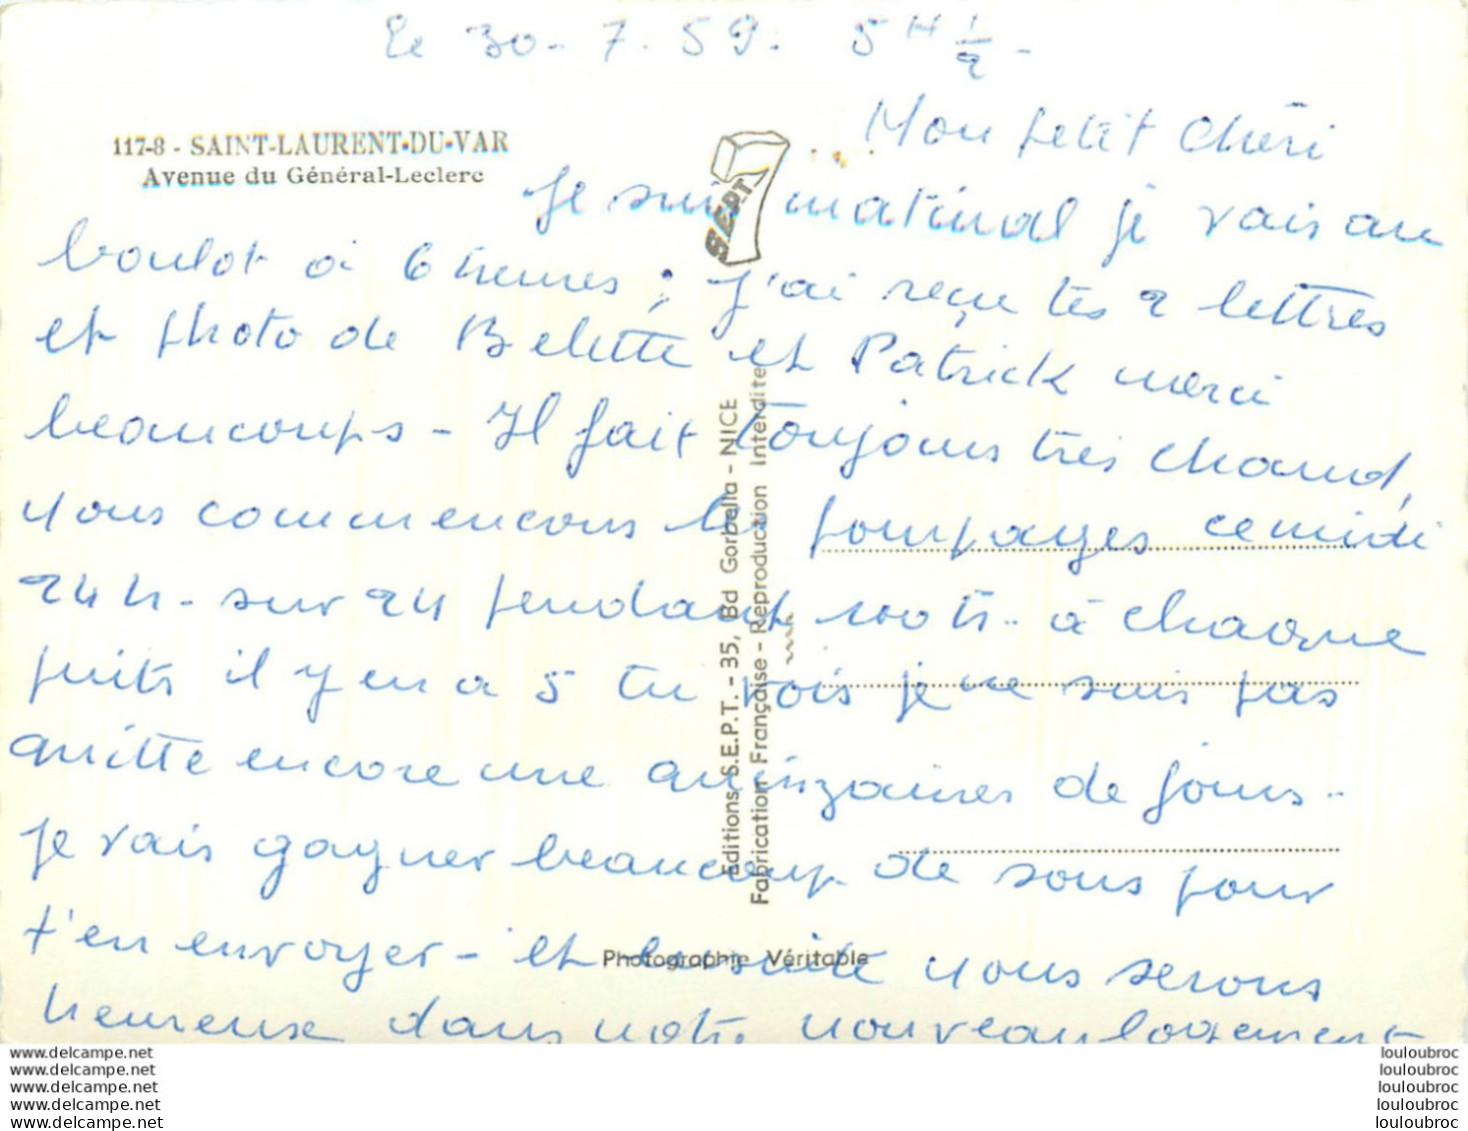 Le 30-7.59. 5H 1/2-
117-8 - SAINT-LAURENT-DU-VAR
Avenue du Général-Leclerc
Mon petit Chéri
Je suis matinal je vais au
boulot à 6 heures ; j'ai reçu tes 2 lettres
et photo de Belette et Patrick merci
beaucoups - Il fait toujours très chaud,
nous commencons les pompages ce midi
24 h. sur 24 pendant 100 h. à chaque
puits il y en a 5 tu vois je ne suis pas
quitte encore une quinzaines de jours-
je vais gagner beaucoup de sous pour
t'en envoyer - et ensuite nous serons
heureuse dans notre nouveau logement
SEPT
7
Editions S.E.P.T. - 35, Bd Gorbella - NICE
Fabrication Française - Reproduction Interdite
Photographie Véritable
www.delcampe.net
www.delcampe.net
www.delcampe.net
www.delcampe.net
www.delcampe.net
louloubroc
louloubroc
louloubroc
louloubroc
louloubroc